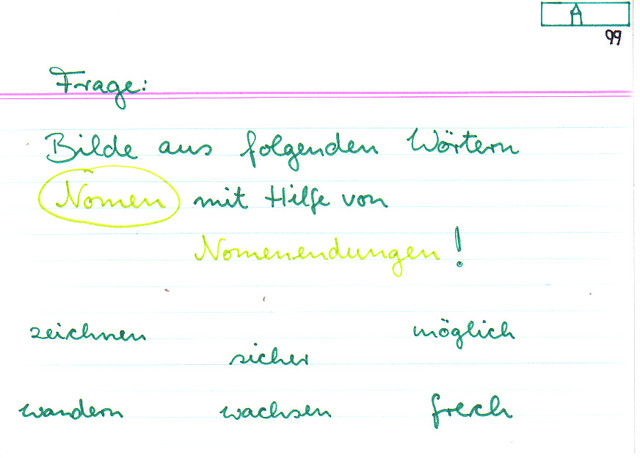 A
99
Frage:
Bilde aus folgenden Wörtern
Nomen mit Hilfe von
Nomenendungen!
zeichnen sicher möglich
wandern wachsen frech